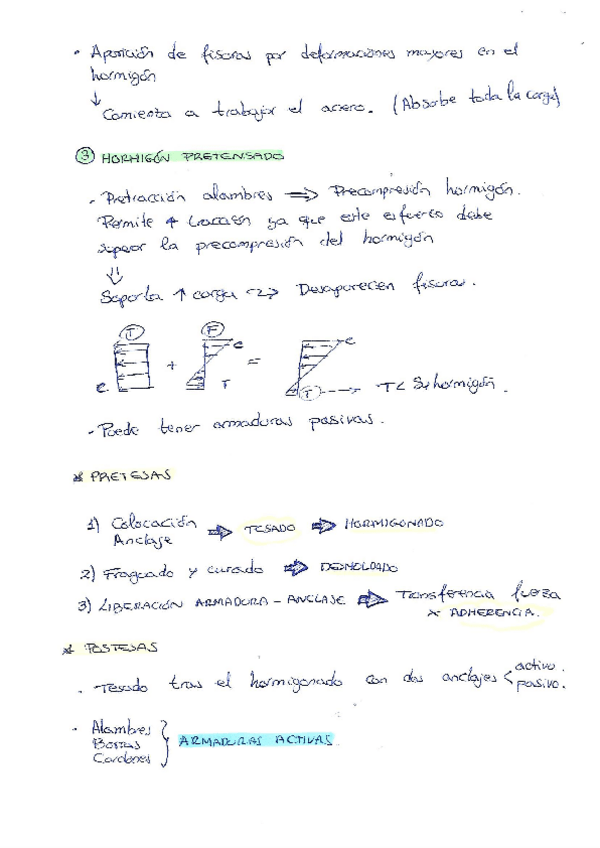 · Aparición de fisuras por deformaciones mayores en el
hormigón
↓
Comienza a trabajar el acero. (Absorbe toda la carga)
③ HORMIGÓN PRETENSADO
- Pretracción alambres ⇒ Precompresión hormigón.
Permite ↑ tracción ya que este esfuerzo debe
superar la precompresión del hormigón
⇓
Soporta ↑ carga <=> Desaparecen fisuras.
T F
c c
+ =
c T T ---> T <  hormigón.
- Puede tener armaduras pasivas.
* PRETESAS
1) Colocación
Anclaje ⇒ TESADO ⇒ HORMIGONADO
2) Fraguado y curado ⇒ DESMOLDADO
3) LIBERACIÓN ARMADURA - ANCLAJE ⇒ Transferencia fuerza
x ADHERENCIA.
* POSTESAS
· Tesado tras el hormigonado con dos anclajes < activo.
pasivo.
· Alambres
Barras } ARMADURAS ACTIVAS
Cordones